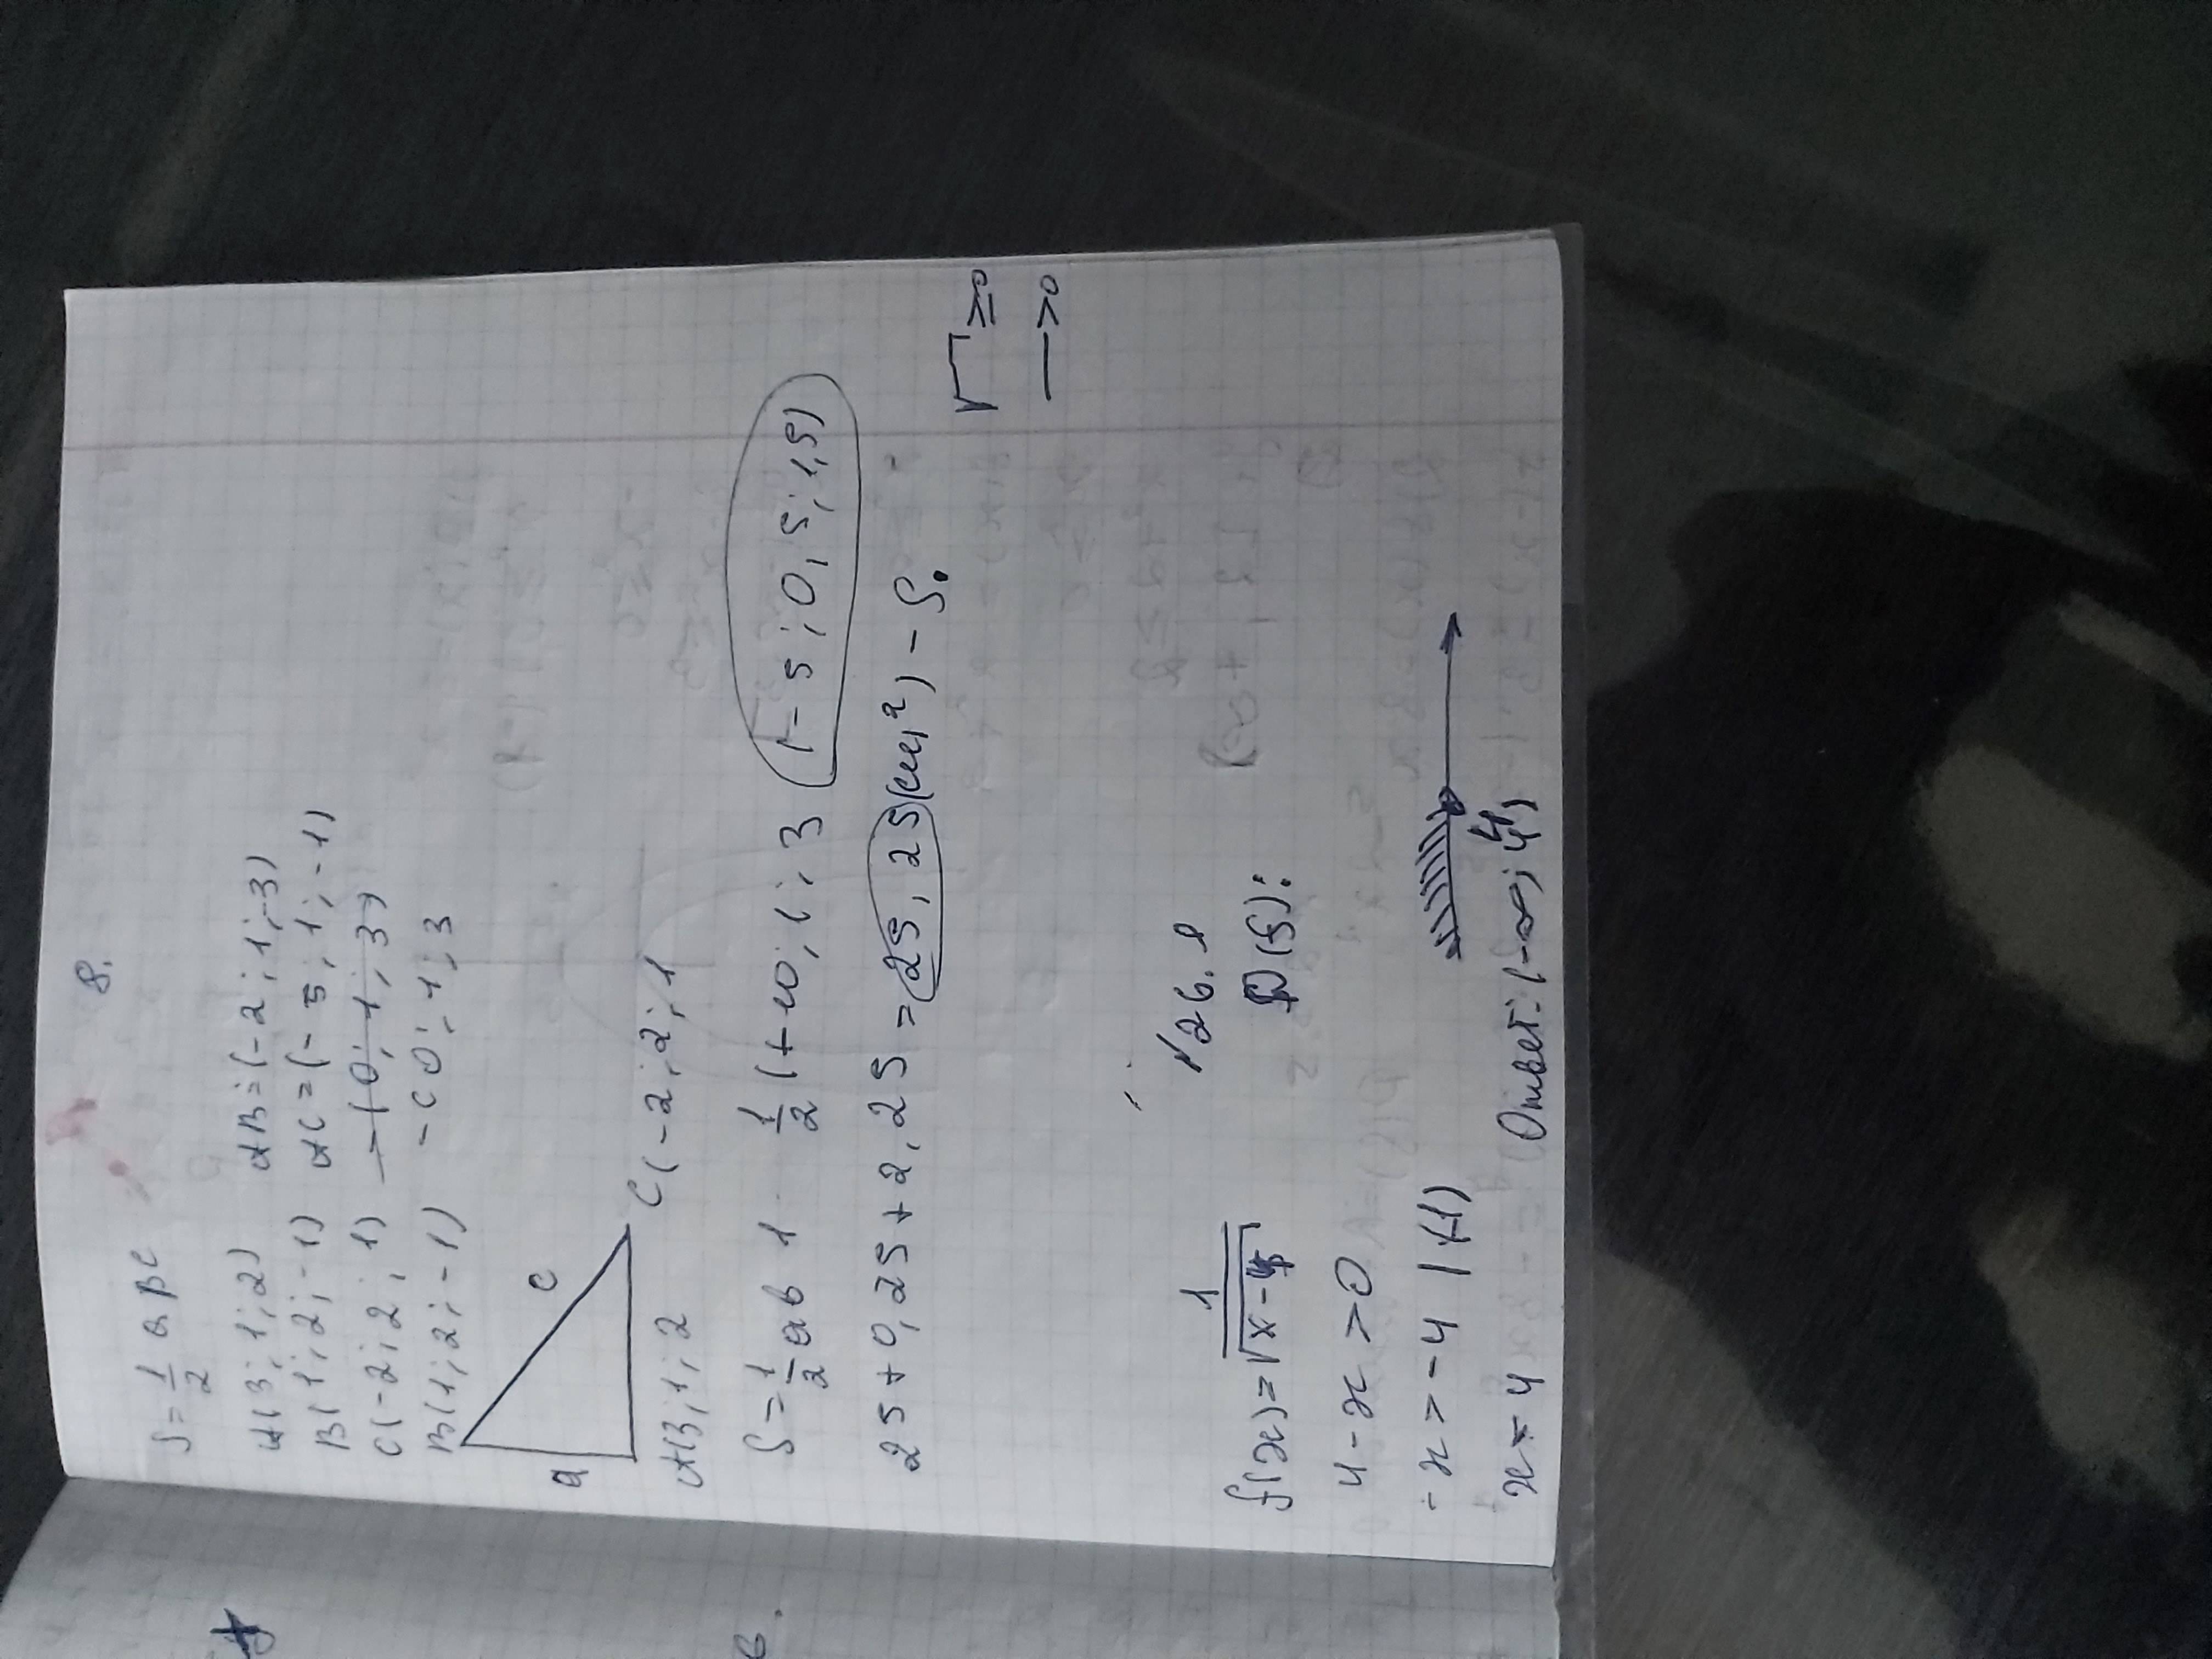 8.
S = 1/2 a b c
A(3; 1; 2) AB = (-2; 1; -3)
B(1; 2; -1) AC = (-5; 1; -1)
C(-2; 2; 1) - (0; 1; 3)
B(1; 2; -1) - (0; 1; 3
a c
A(3; 1; 2 C(-2; 2; 1
S = 1/2 ab 1 1/2 (+10; 1; 3 (-5; 0,5; 1,5)
25 + 0,25 + 2,25 = 25,25 (см²) - S.
√ ≥0
— >0
√26.1
f(x) = 1/√x-4 D(f):
4 - x > 0
-x > -4 | (-1)
x = 4 Ответ: (-∞; 4)
4
6.